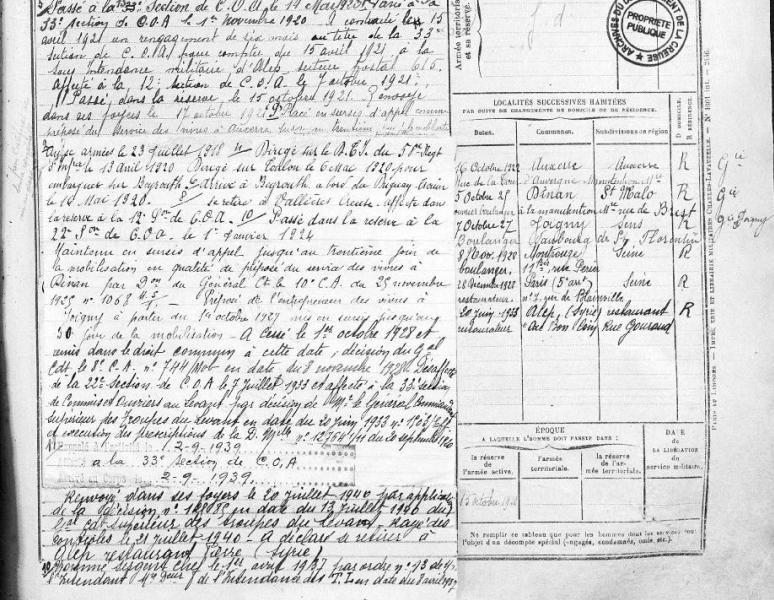 Passé à la 33e Section de C.O.A. le 14 Mai 1920
33e section de C.O.A le 1er novembre 1920 A contracté le 15
avril 1921 un rengagement de six mois au titre de la 33e
section de C.O.A. pour compter du 15 avril 1921 à la
sous Intendance militaire d'Alep, secteur postal 615.
affecté à la 12e section de C.O.A. le 7 octobre 1921.
Passé dans la réserve le 15 octobre 1921. Renvoyé
dans ses foyers le 17 octobre 1921 Placé en sursis d'appel comme
préposé du service des vivres à Auxerre
armées le 23 juillet 1918 Dirigé sur le
le 13 avril 1920 Dirigé sur Toulon le 6 Mai 1920 pour
embarquer sur Beyrouth. Arrivé à Beyrouth à bord du
le 19 Mai 1920. se retire à Vallières Creuse. affecté dans
la réserve à la 12e Son de C.O.A. Passé dans la réserve à la
22e Son de C.O.A. le 1er Janvier 1924
Maintenu en sursis d'appel jusqu'au trentième jour de
la mobilisation en qualité de préposé du service des vivres à
Dinan par Don du Général Ct le 10e C.A. du 25 novembre
1925 n° 1068 Préposé de l'entrepreneur des vivres à
Joigny à partir du 1er octobre 1927 mis en sursis jusqu'au
30 jour de la mobilisation - A cessé le 1er octobre 1928 et
remis dans le droit commun à cette date, décision du Gal
Cdt le 8e C.A. n° 744 Mob en date du 8 novembre 1928. Désaffecté
de la 22e Section de C.O.A le 7 Juillet 1933 et affecté à la 33e Section
de Commis et Ouvriers au Levant par décision de Mr le Général Commandant
Supérieur des Troupes du Levant en date du 20 Juin 1933
et exécution des prescriptions de la D. Mlle n° 12764 du 20 septembre
2-9-1939
à la 33e section de C.O.A
2-9-1939
Renvoyé dans ses foyers le 20 juillet 1940 par application
de la décision en date du 13 juillet 1940 du
Gal cdt supérieur des troupes du Levant - Rayé des
contrôles le 21 juillet 1940 - A déclaré se retirer à
Alep restaurant (Syrie)
Nommé Sergent Chef le 1er avril 1937 par ordre n° 13 de
l'Intendant de l'Intendance des T. Lev date du 8 avril 1937
Armée territoriale
et sa réserve.
ARCHIVES DU DÉPARTEMENT DE LA CREUSE
PROPRIÉTÉ
PUBLIQUE
LOCALITÉS SUCCESSIVES HABITÉES
PAR SUITE DE CHANGEMENTS DE DOMICILE OU DE RÉSIDENCE.
Dates. Communes. Subdivisions de région D. DOMICILE. R. RÉSIDENCE.
16 Octobre 1922 Auxerre Auxerre R
Rue de la Tour d'Auvergne Manutention Mre
5 Octobre 25 Dinan St Malo R
ouvrier boulanger à la manutention Mre rue de Brest
7 Octobre 27 Joigny Sens R
Boulanger Faubourg de St Florentin
8 Nov. 1928 Montrouge Seine R
boulanger. 11 bis rue Périer
28 Décembre 1928 Paris (5e arrt) Seine R
restaurateur n° 7, rue de Blainville
20 juin 1933 Alep, (Syrie) restaurant R
restaurateur "Au Bon Coin" Rue Gouraud
Gie
Gie
Gie Joigny
ÉPOQUE
A LAQUELLE L'HOMME DOIT PASSER DANS :
la réserve de l'armée active. l'armée territoriale. la réserve de l'armée territoriale.
DATE
DE LA LIBÉRATION
du service militaire.
15 octobre 1921
Ne remplir ce tableau que pour les hommes dont les services font
l'objet d'un décompte spécial (engagés, condamnés, omis, etc.)
PARIS ET LIMOGES. - IMPR. ET LIBRAIRIE MILITAIRES CHARLES-LAVAUZELLE.